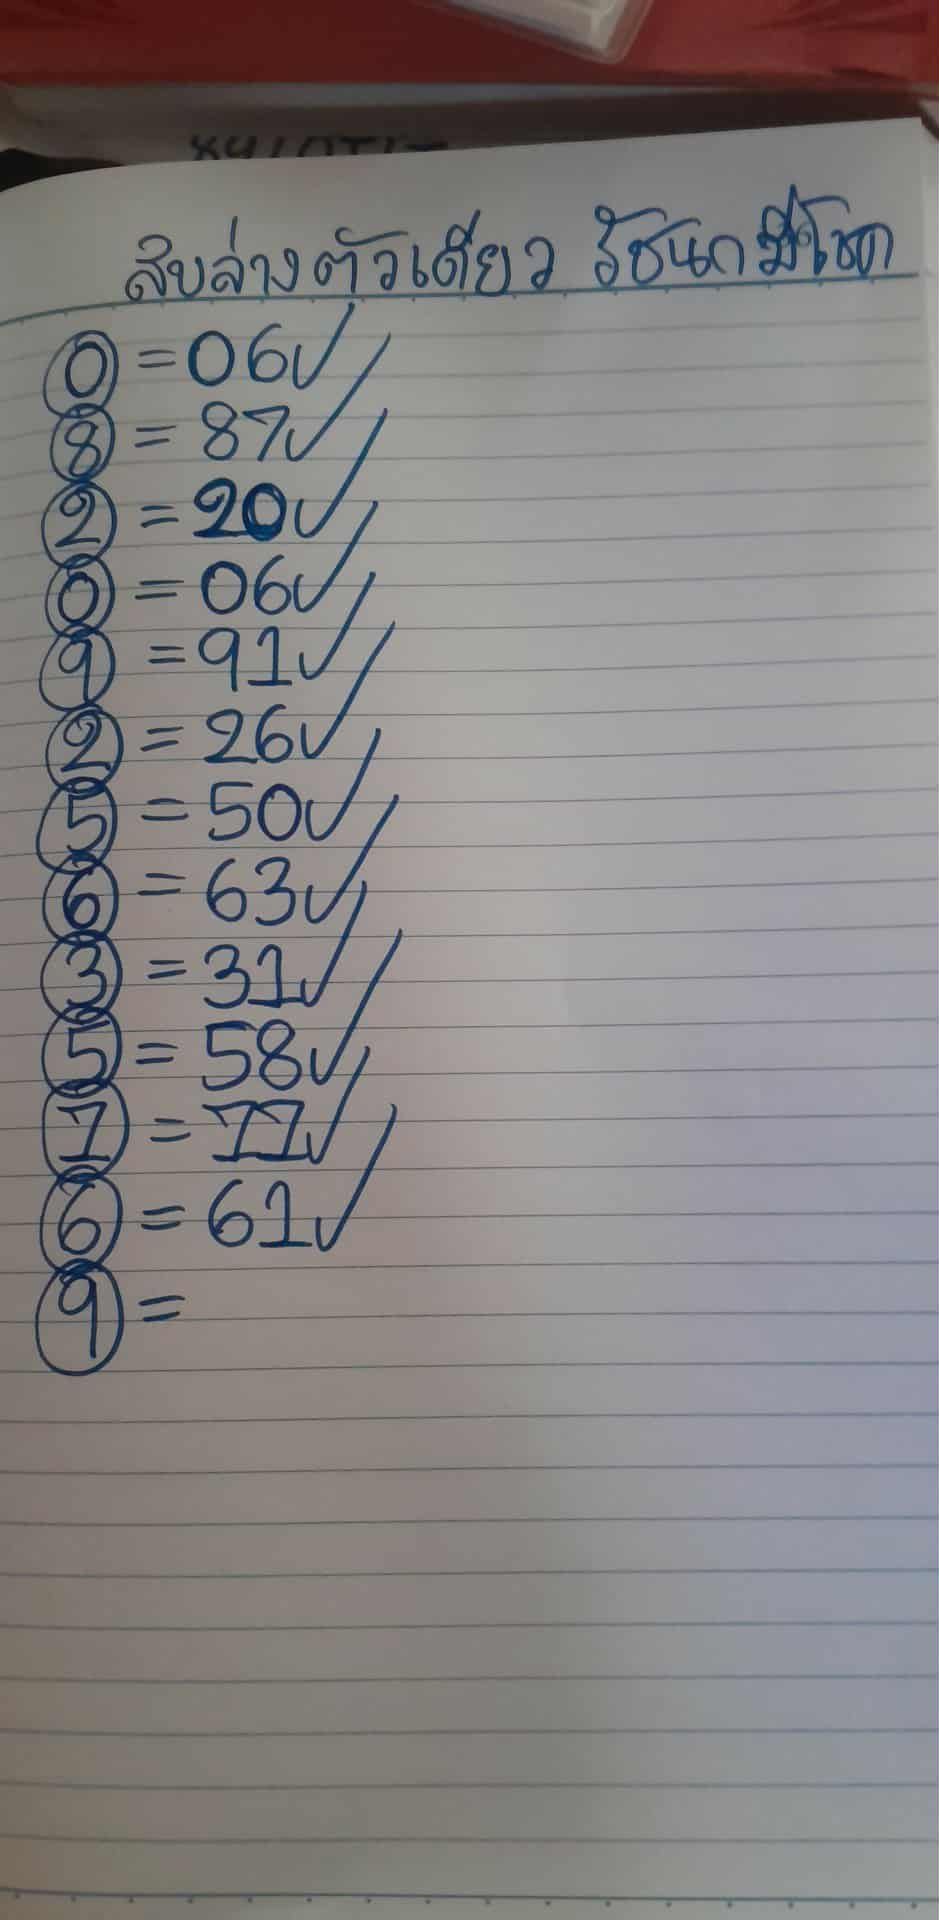 สิบล่างตัวเดียว รัชนกมีโชค
0 = 06✓
8 = 87✓
2 = 20✓
0 = 06✓
9 = 91✓
2 = 26✓
5 = 50✓
6 = 63✓
3 = 31✓
5 = 58✓
7 = 77✓
6 = 61✓
9 =